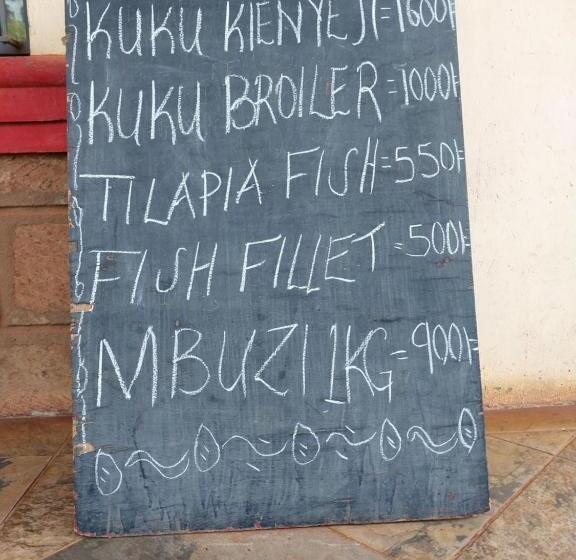 KUKU KIENYEJI=1600/=
KUKU BROILER=1000/=
TILAPIA FISH=550/=
FISH FILLET=500/=
MBUZI 1KG=900/=